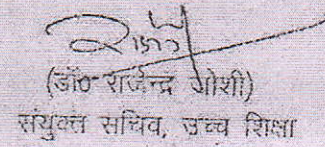 (डॉ० राजेन्द्र जोशी)
संयुक्त सचिव, उच्च शिक्षा